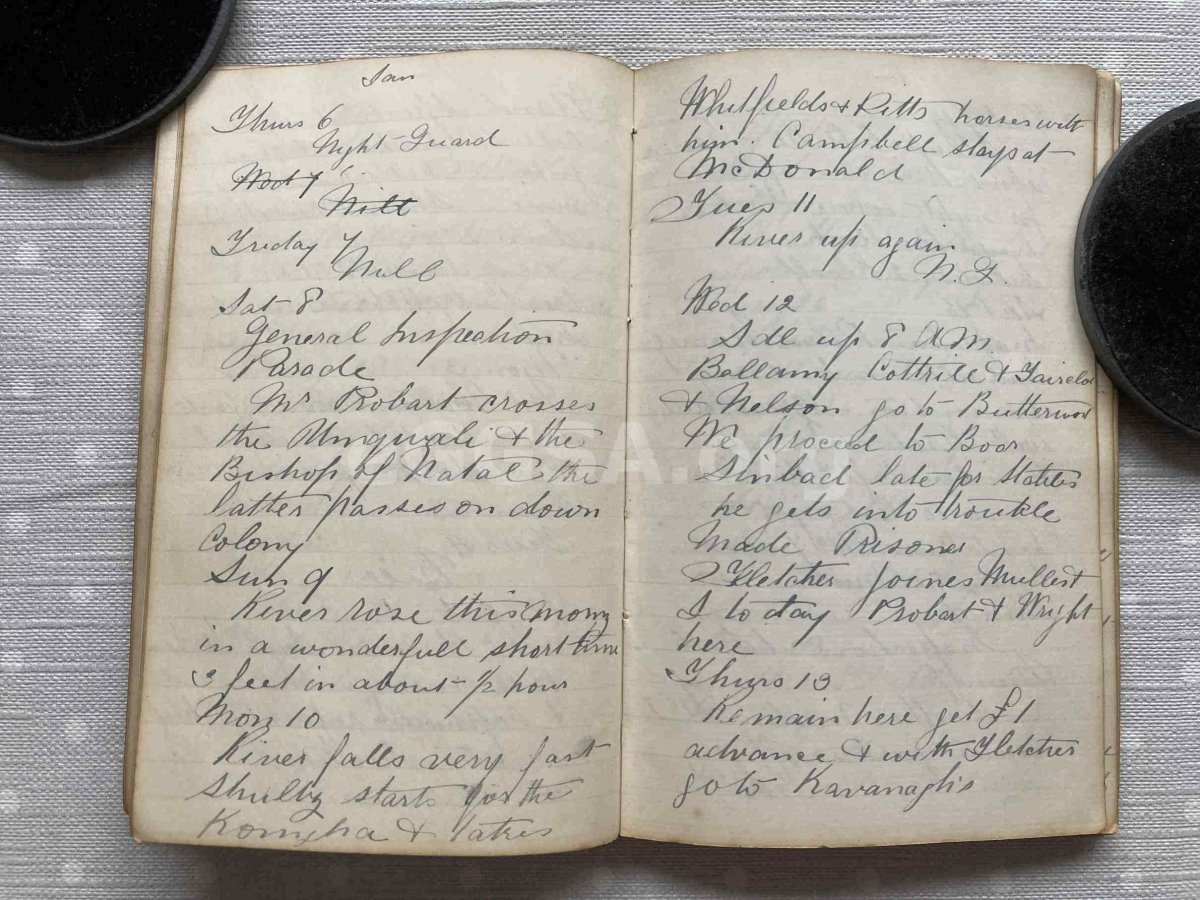 Jan
Thurs 6
Night Guard
Wed 7
Nill
Friday 7
Nill
Sat 8
General Inspection
Parade
Mr Probart crosses
the Umgwali & the
Bishop of Natal the
latter passes on down
Colony
Sun 9
River rose this morng
in a wonderfull short time
3 feet in about ½ hour
Mon 10
River falls very fast
Shultz starts for the
Komgha & takes
Whitfields & Pitts horses with
him. Campbell stays at
McDonald
Tues 11
River up again
N.G.
Wed 12
Sdl up 8 AM.
Bellamy Cottrill &
& Nelson go to Butterwor
We proceed to Boos
Sinbad late for Stables
he gets into trouble
Made Prisoner
Fletcher joines Mullest
I to day Probart & Wright
here
Thurs 13
Remain here get £1
advance & with Fletcher
go to Kavanagh's